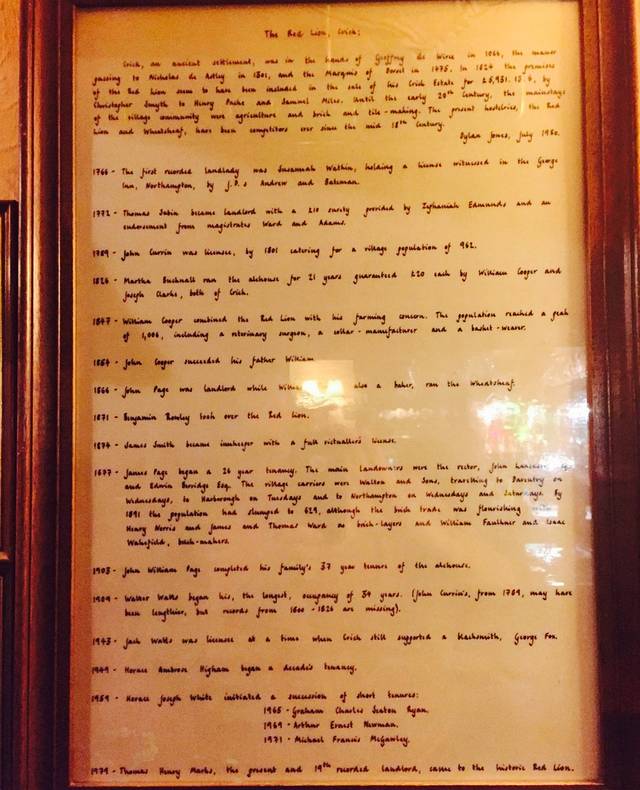 The Red Lion, Crick:
Crick, an ancient settlement, was in the hands of Geoffrey de Wirce in 1064, the manor
passing to Nicholas de Astley in 1301, and the Marquis of Dorset in 1475. In 1824 the premises
of the Red Lion seem to have been included in the sale of his Crick Estate for £5,931. 13. 4, by
Christopher Smyth to Henry Pache and Samuel Miles. Until the early 20th Century, the mainstays
of the village community were agriculture and brick and tile-making. The present hostelries, the Red
Lion and Wheatsheaf, have been competitors ever since the mid 18th Century.
Dylan Jones, July 1980.
1766 - The first recorded landlady was Susannah Watkin, holding a license witnessed in the George
Inn, Northampton, by J.P.s Andrew and Bateman.
1772 - Thomas Sabin became landlord with a £10 surety provided by Zephaniah Edmunds and an
endorsement from magistrates Ward and Adams.
1789 - John Currin was licensee, by 1801 catering for a village population of 962.
1826 - Martha Bucknall ran the alehouse for 21 years guaranteed £20 each by William Cooper and
Joseph Clarke, both of Crick.
1847 - William Cooper combined the Red Lion with his farming concern. The population reached a peak
of 1,006, including a veterinary surgeon, a collar-manufacturer and a basket-weaver.
1854 - John Cooper succeeded his father William
1866 - John Page was landlord while also a baker, ran the Wheatsheaf.
1871 - Benjamin Rowley took over the Red Lion.
1874 - James Smith became innkeeper with a full victuallers license.
1877 - James Page began a 26 year tenancy. The main landowners were the rector, John
and Edwin Burridge Esq. The village carriers were Walton and Sons, travelling to Daventry on
Wednesdays, to Harborough on Tuesdays and to Northampton on Wednesdays and Saturdays. By
1891 the population had slumped to 629, although the brick trade was flourishing with
Henry Norris and James and Thomas Ward as brick-layers and William Faulkner and Isaac
Wakefield, brick-makers.
1903 - John William Page completed his family's 37 year tenure of the alehouse.
1909 - Walter Watts began his, the longest, occupancy of 34 years. (John Currin's, from 1789, may have
been lengthier, but records from 1800 - 1826 are missing).
1943 - Jack Watts was licensee at a time when Crick still supported a blacksmith, George Fox.
1949 - Horace Ambrose Higham began a decade's tenancy.
1959 - Horace Joseph White initiated a succession of short tenures:
1965 - Graham Charles Seaton Ryan.
1969 - Arthur Ernest Newman.
1971 - Michael Francis McGawley.
1979 - Thomas Henry Marks, the present and 19th recorded landlord, came to the historic Red Lion.